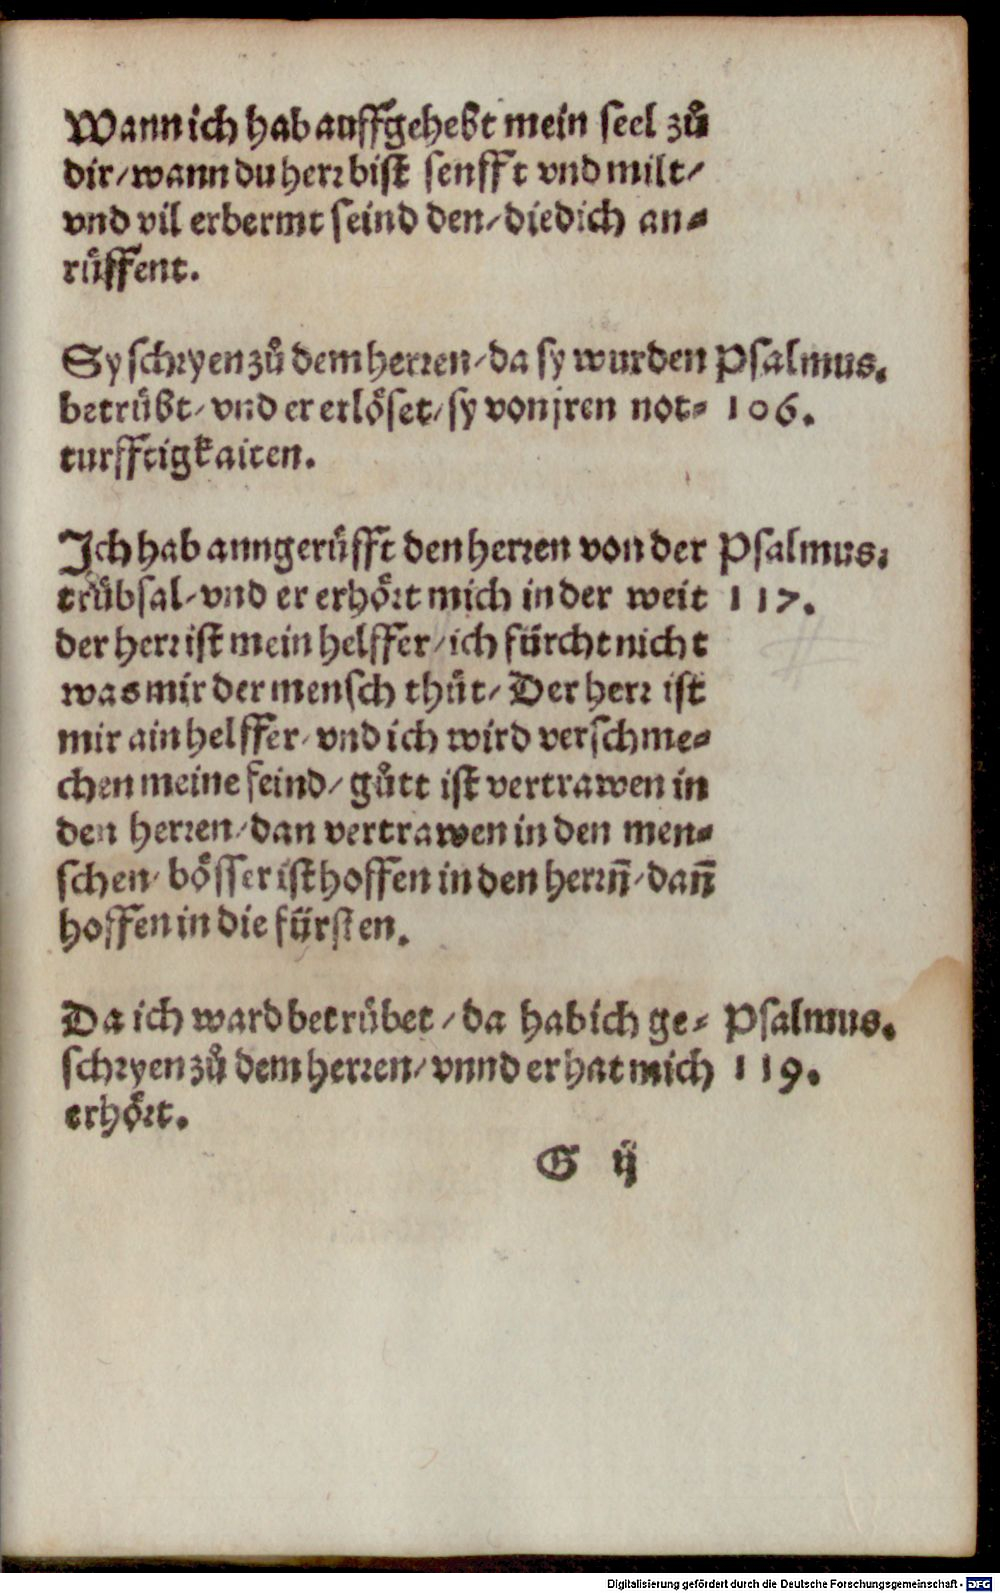 Wann ich hab auffgehebt mein seel zů
dir/ wann du herr bist senfft vnd milt/
vnd vil erbermt seind den/ die dich an-
rüffent.
Sy schryen zů dem herren/ da sy wurden Psalmus.
betrübt/ vnd er erlöset/ sy von jren not- 106.
turfftigkaiten.
Ich hab anngerüfft den herren von der Psalmus.
trübsal/ vnd er erhört mich in der weit 117.
der herr ist mein helffer/ ich fürcht nicht
was mir der mensch thůt/ Der herr ist
mir ain helffer/ vnd ich wird verschme-
chen meine feind/ gůtt ist vertrawen in
den herren/ dan vertrawen in den men-
schen/ bösser ist hoffen in den herrn̄/ dan̄
hoffen in die fürsten.
Da ich ward betrübet/ da hab ich ge- Psalmus.
schryen zů dem herren/ vnnd er hat mich 119.
erhört.
G ij
Digitalisierung gefördert durch die Deutsche Forschungsgemeinschaft - DFG